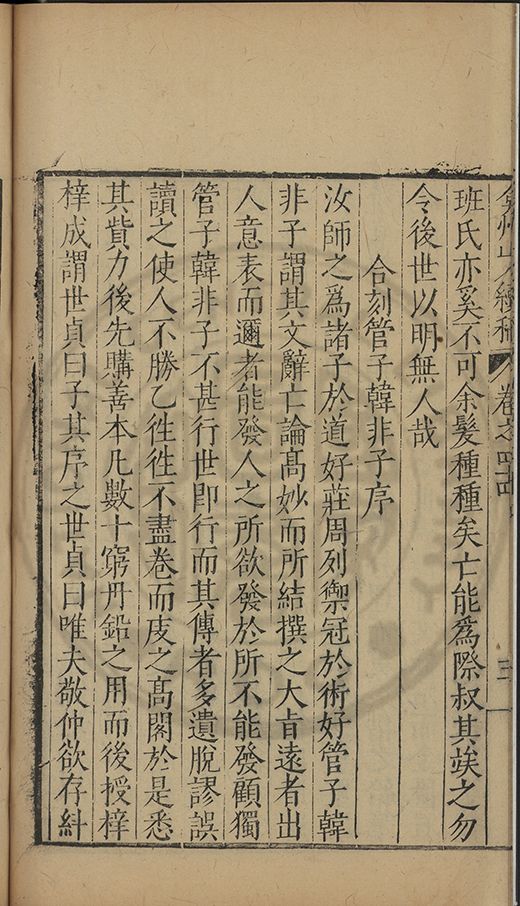 弇州山人續稿 卷之四十四 三
班氏亦奚不可余髮種種矣亡能爲際叔其竢之勿
令後世以明無人哉
合刻管子韓非子序
汝師之爲諸子於道好莊周列禦冠於術好管子韓
非子謂其文辭亡論髙妙而所結撰之大旨遠者出
人意表而邇者能發人之所欲發於所不能發顧獨
管子韓非子不甚行世即行而其傳者多遺脫謬誤
讀之使人不勝乙徃徃不盡卷而庋之髙閣於是悉
其貲力後先購善本凡數十窮丹鉛之用而後授梓
梓成謂世貞曰子其序之世貞曰唯夫敬仲欲存糾